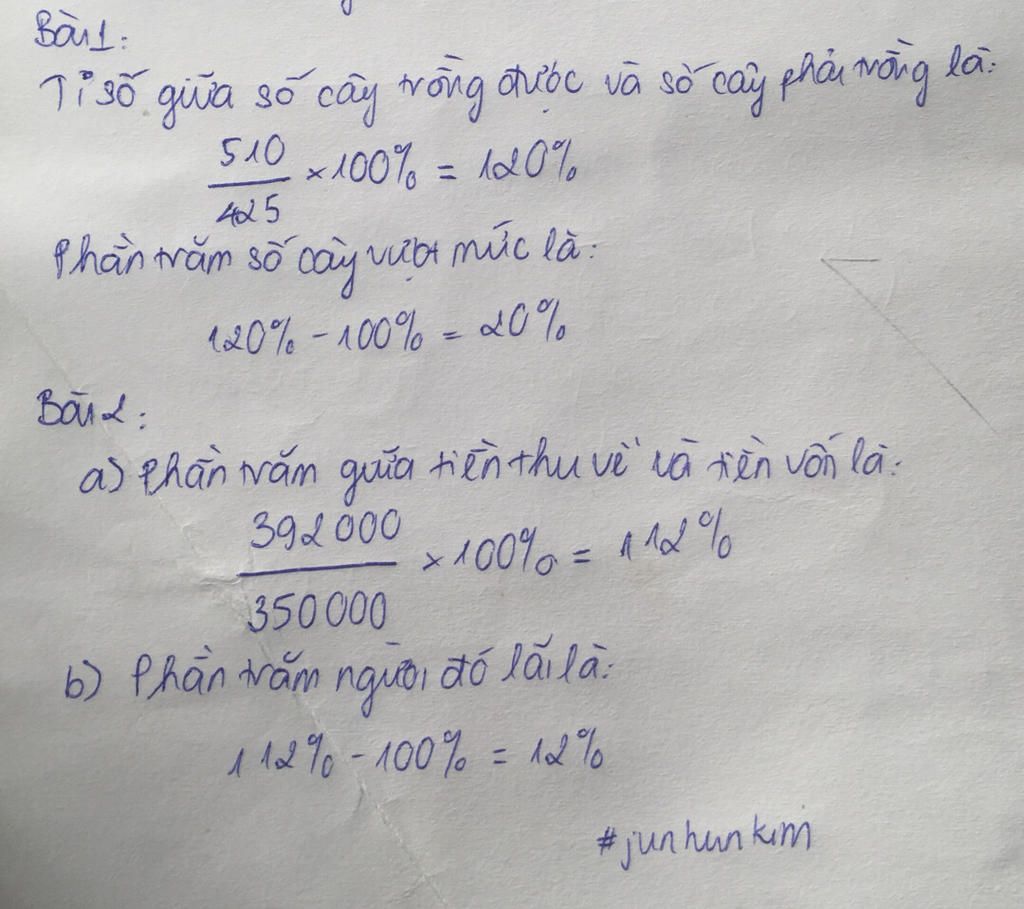 Bài 1:
Tỉ số giữa số cây trồng được và số cây phải trồng là:
510
425
× 100% = 120%
Phần trăm số cây vượt mức là:
120% - 100% = 20%
Bài 2:
a) Phần trăm giữa tiền thu về và tiền vốn là:
392000
350000
× 100% = 112%
b) Phần trăm người đó lãi là:
112% - 100% = 12%
#junhunkim